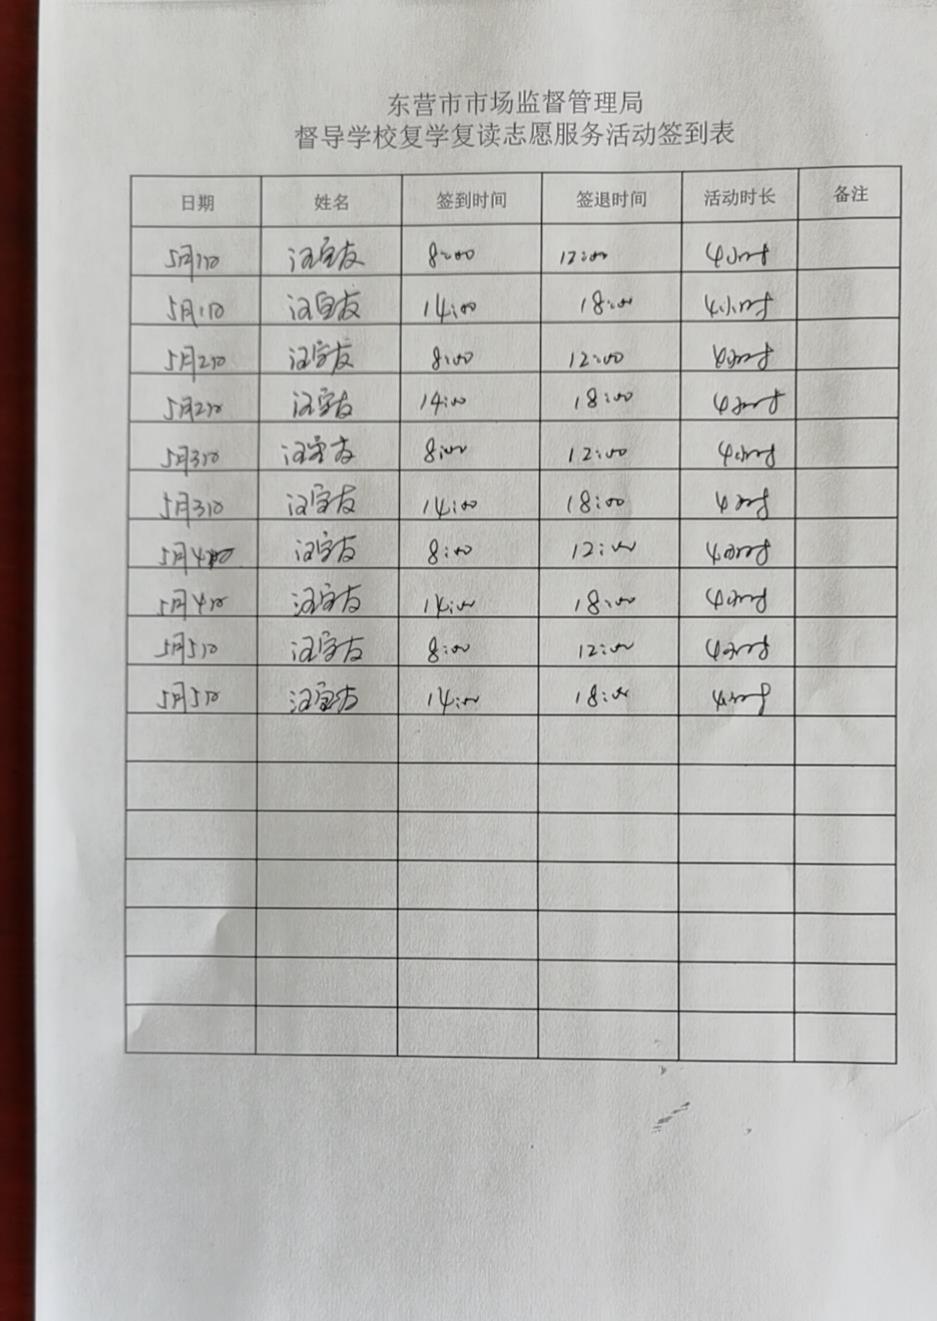 东营市市场监督管理局
督导学校复学复读志愿服务活动签到表
日期 姓名 签到时间 签退时间 活动时长 备注
5月1日 8:00 12:00 4小时
5月1日 14:00 18:00 4小时
5月2日 8:00 12:00 4小时
5月2日 14:00 18:00 4小时
5月3日 8:00 12:00 4小时
5月3日 14:00 18:00 4小时
5月4日 8:00 12:00 4小时
5月4日 14:00 18:00 4小时
5月5日 8:00 12:00 4小时
5月5日 14:00 18:00 4小时